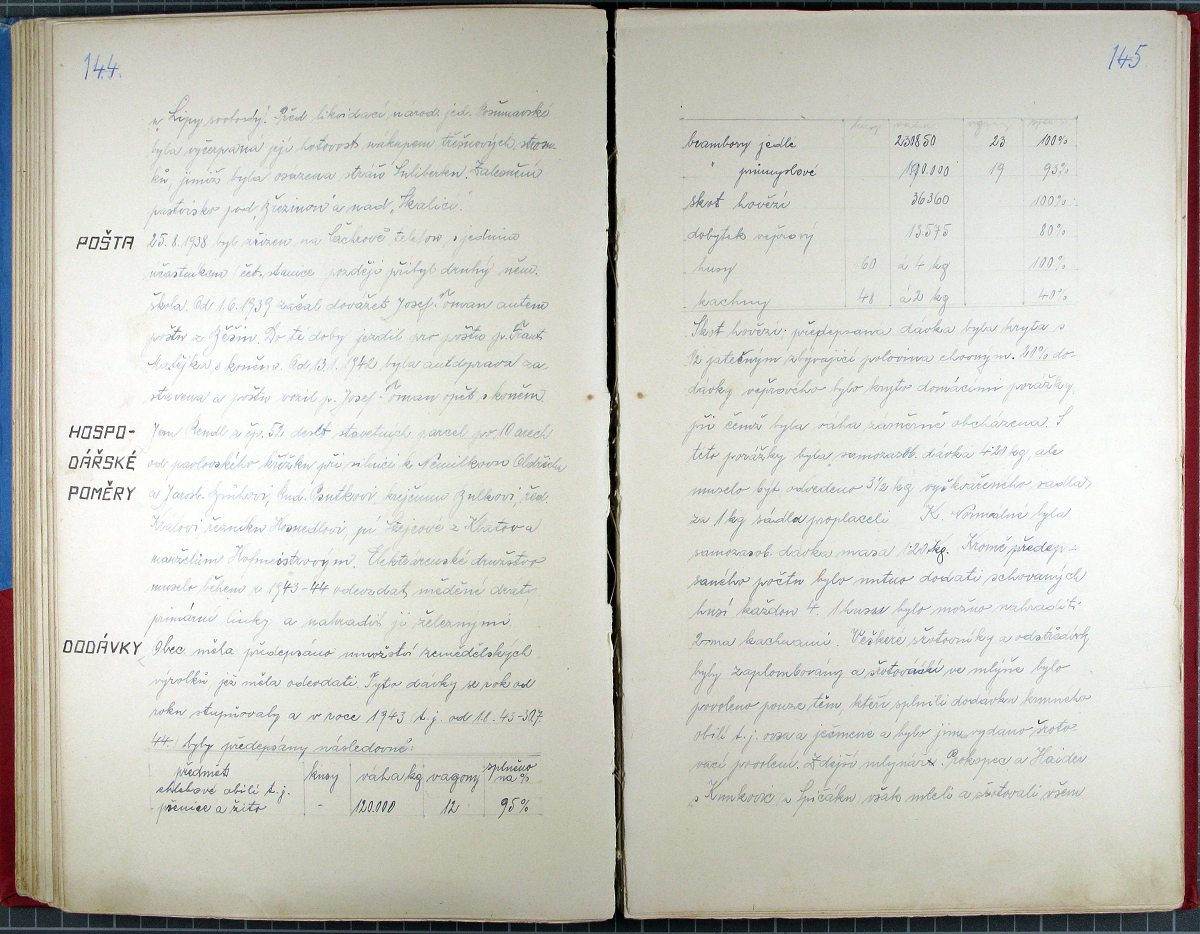 144.
u Lípy svobody! Před likvidací národ. jed. Pošumavské
byla vyčerpána její hotovost nákupem třešňových strom-
ků, jimiž byla osazena stráň Zalesnění
pastviska pod „Březinou“ a nad „Skalicí“.
POŠTA
25.8.1938 byl zřízen na telefon s jedním
účastníkem (čet. stanice) později přibyl druhý něm.
škola. Od 1.6.1939 začal dovážet Josef Toman autem
poštu z Běšin. Do té doby jezdil pro poštu p. Frant.
Matějka s koněm. Od 13.1.1942 byla autodoprava za-
stavena a poštu vozil p. Josef Toman opět s koněm.
HOSPO-
DÁŘSKÉ
POMĚRY
Jan Rendl z čp. 53 deset stavebních parcel po 10 arech
od pavlovského křížku při silnici k Nemilkovu Oldřichu
a Jarosl. Rud. krejčímu říd.
Královi řezníku pí
manželům Hofmeistrovým. Elektrárenské družstvo
muselo během r. 1943-44 odevzdat měděné dráty
primární linky a nahradit je železnými.
DODÁVKY
Obec měla předepsáno množství zemědělských
výrobků jež měla odevzdati. Tyto dávky se rok od
roku stupňovaly a v roce 1943 t.j. od 1.8.43-30.7.
44. byly předepsány následovně:
předmět kusy váha kg vagony splněno na %
chlebové obilí t.j.
pšenice a žito - 120.000 12 95%
145
brambory jedlé 230850 23 100%
" průmyslové 190.000 19 95%
skot hovězí 36360 100%
dobytek vepřový 13.575 80%
husy 60 á 4 kg 100%
kachny 40 á 2 kg 40%
Skot hovězí: předepsaná dávka byla kryta s
1/2 jatečným zbývající polovina chovným. 80% do-
dávky vepřového bylo kryto domácími porážky,
při čemž byla váha záměrně obcházena. S
této porážky byla samozásob. dávka 420 kg, ale
muselo být odvedeno 3 1/2 kg vyškvařeného sádla,
za 1 kg sádla proplaceli K. Normálně byla
samozásob. dávka masa 120 kg. Kromě předep-
saného počtu bylo nutno dodati schovaných
husí každou 4. 1 husu bylo možno nahraditi
2ma kachnami. Veškeré šrotovníky a odstředivky
byly zaplombovány a šrotování ve mlýně bylo
povoleno pouze těm, kteří splnili dodávku krmného
obilí t.j. ovsa a ječmene a bylo jim vydáno šroto-
vací povolení. Zdejší mlynáři Prokopec a Haider
s však mleli a šrotovali všem